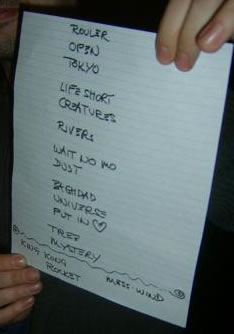 ROULER
OPEN
TOKYO
LIFE SHORT
CREATURES
RIVERS
WAIT NO MO
DUST
BAGHDAD
UNIVERSE
PUT IN ♡
TREE
MYSTERY
KING KONG
ROCKET
MESS. WIND